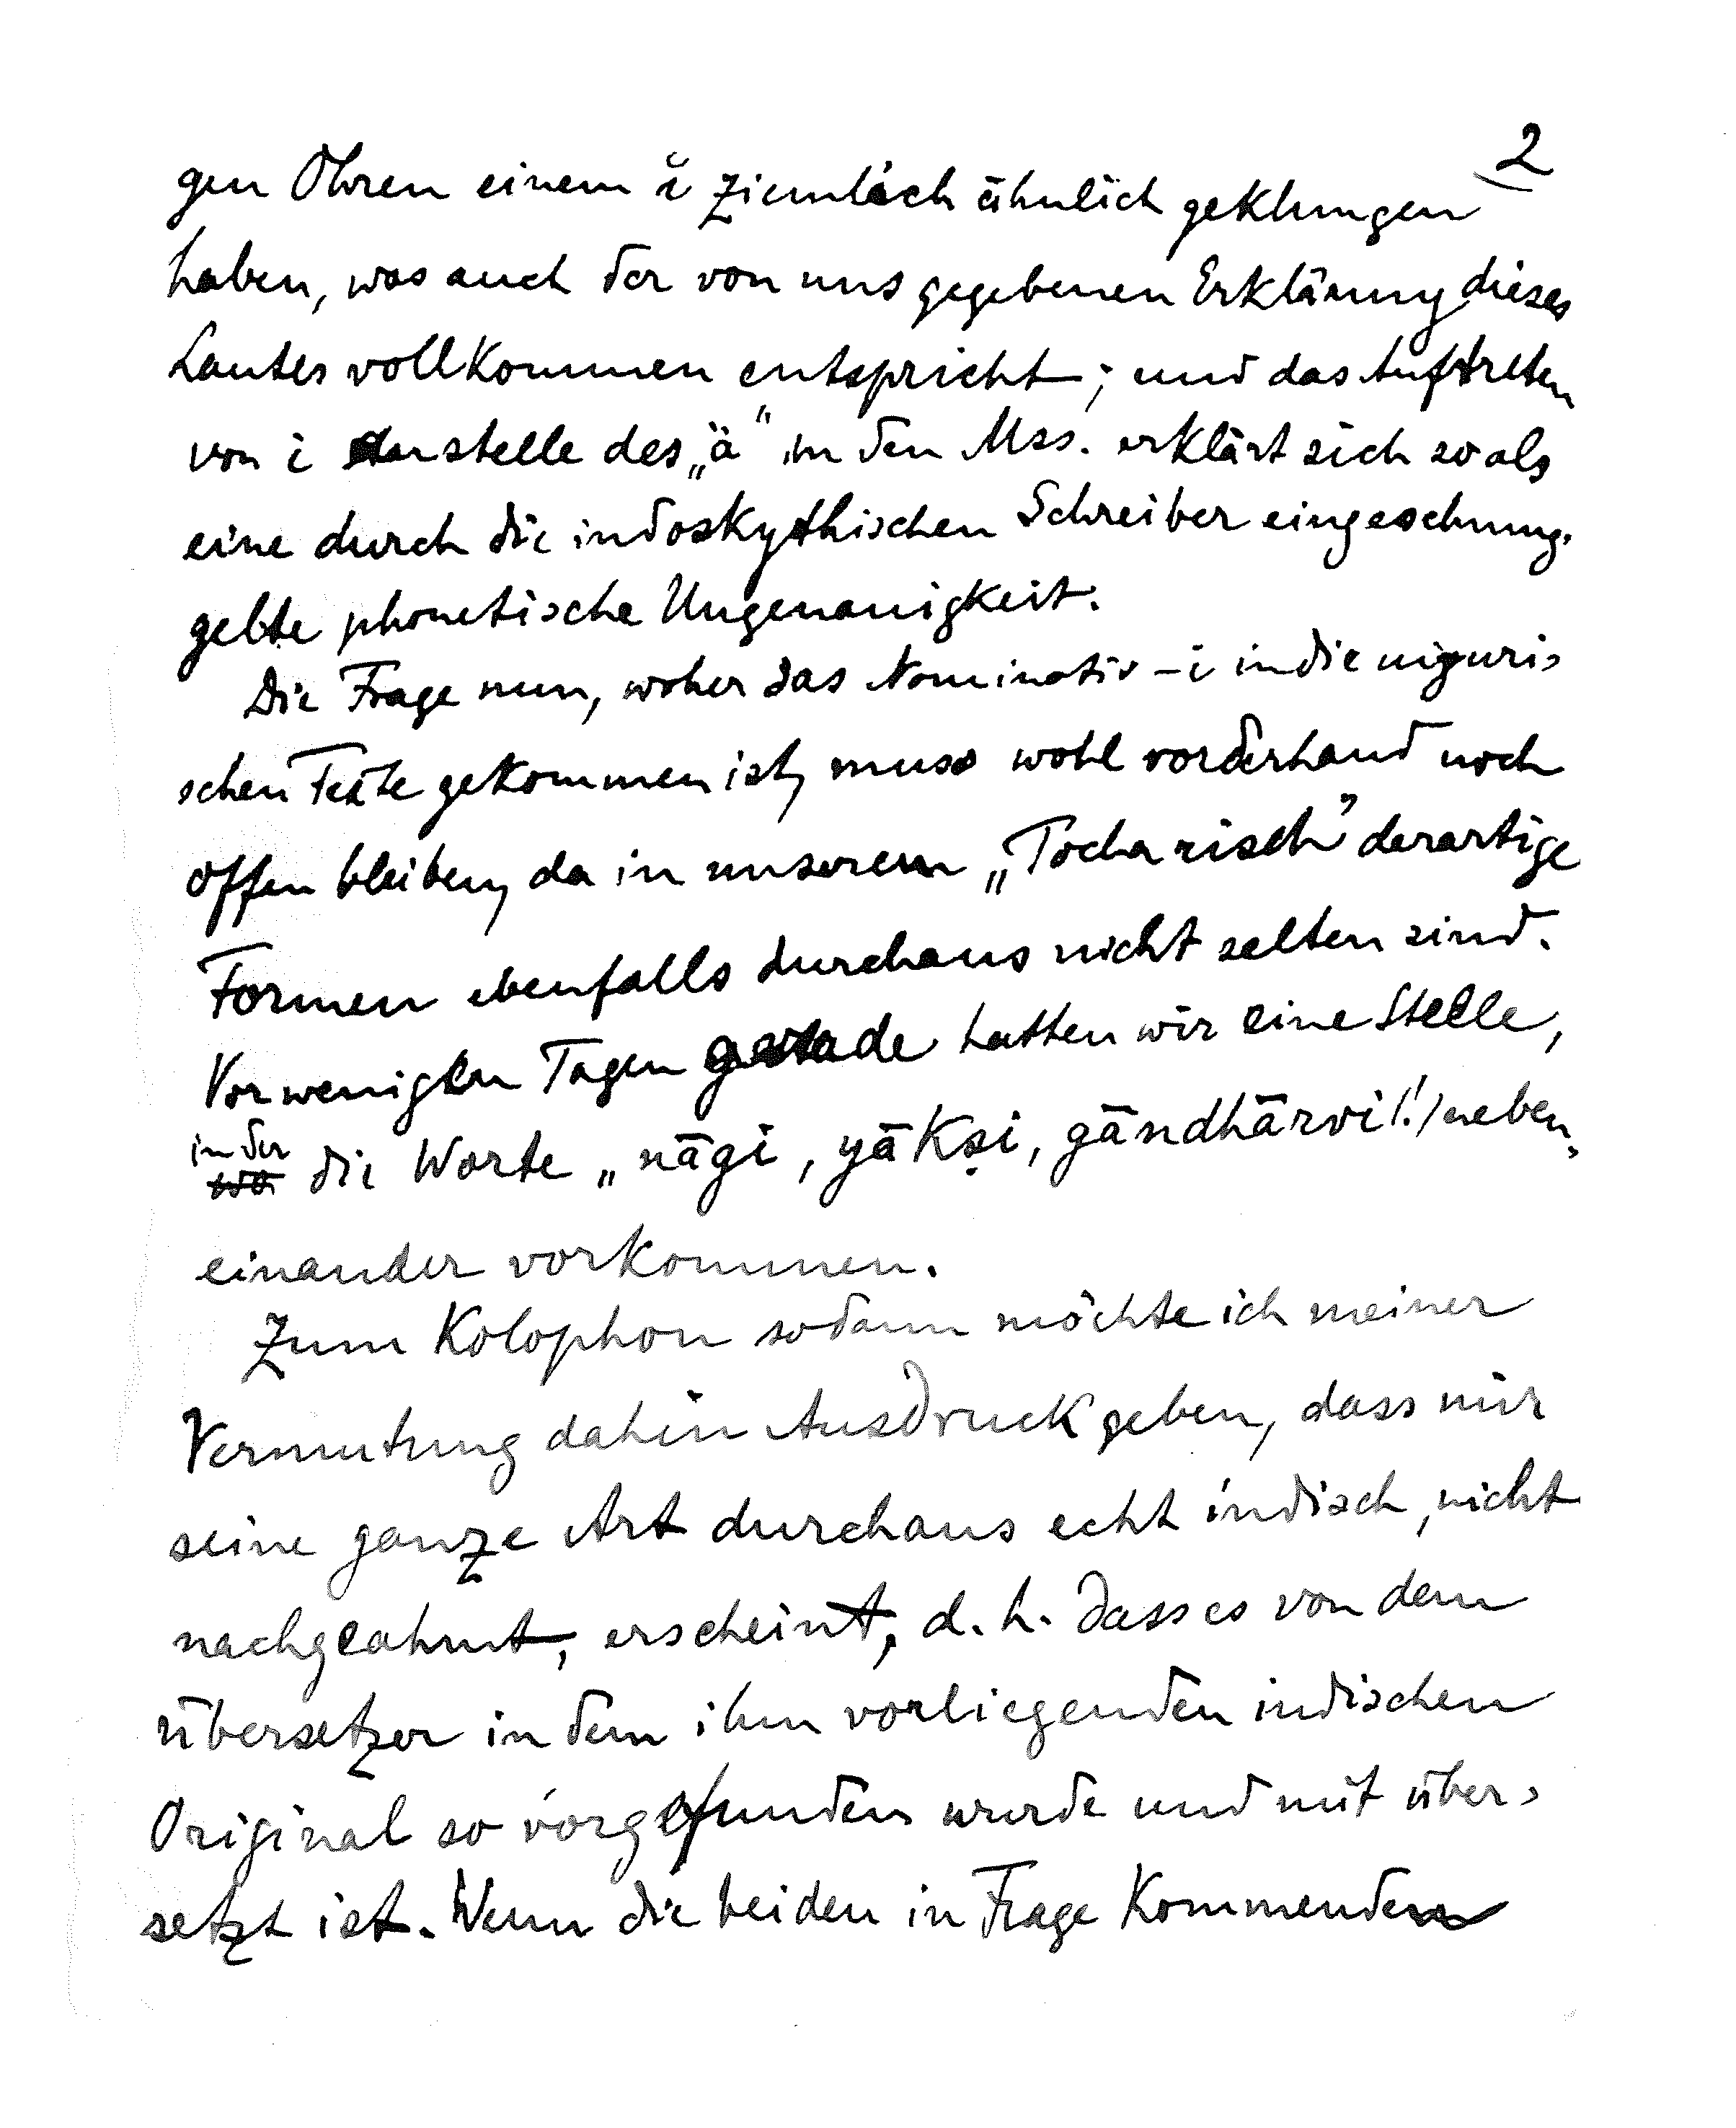 2
gen Ohren einem ĭ ziemlich ähnlich geklungen
haben, was auch der von uns gegebenen Erklärung dieses
Lautes vollkommen entspricht; und das Auftreten
von i anstelle des „ä" in den Mss. erklärt sich so als
eine durch die indoskythischen Schreiber eingeschmug-
gelte phonetische Ungenauigkeit.
Die Frage nun, woher das Nominativ -i in die uiguri-
schen Texte gekommen ist, muss wohl vorderhand noch
offen bleiben, da in unserem „Tocharisch" derartige
Formen ebenfalls durchaus nicht selten sind.
Vor wenigen Tagen gerade hatten wir eine Stelle,
in der
wo die Worte „nāgi, yākṣi, gāndhārvi (!) neben-
einander vorkommen.
Zum Kolophon sodann möchte ich meiner
Vermutung dahin Ausdruck geben, dass mir
seine ganze Art durchaus echt indisch, nicht
nachgeahmt, erscheint, d. h. dass es von dem
Übersetzer in dem ihm vorliegenden indischen
Original so vorgefunden wurde und mit über-
setzt ist. Wenn die beiden in Frage kommenden